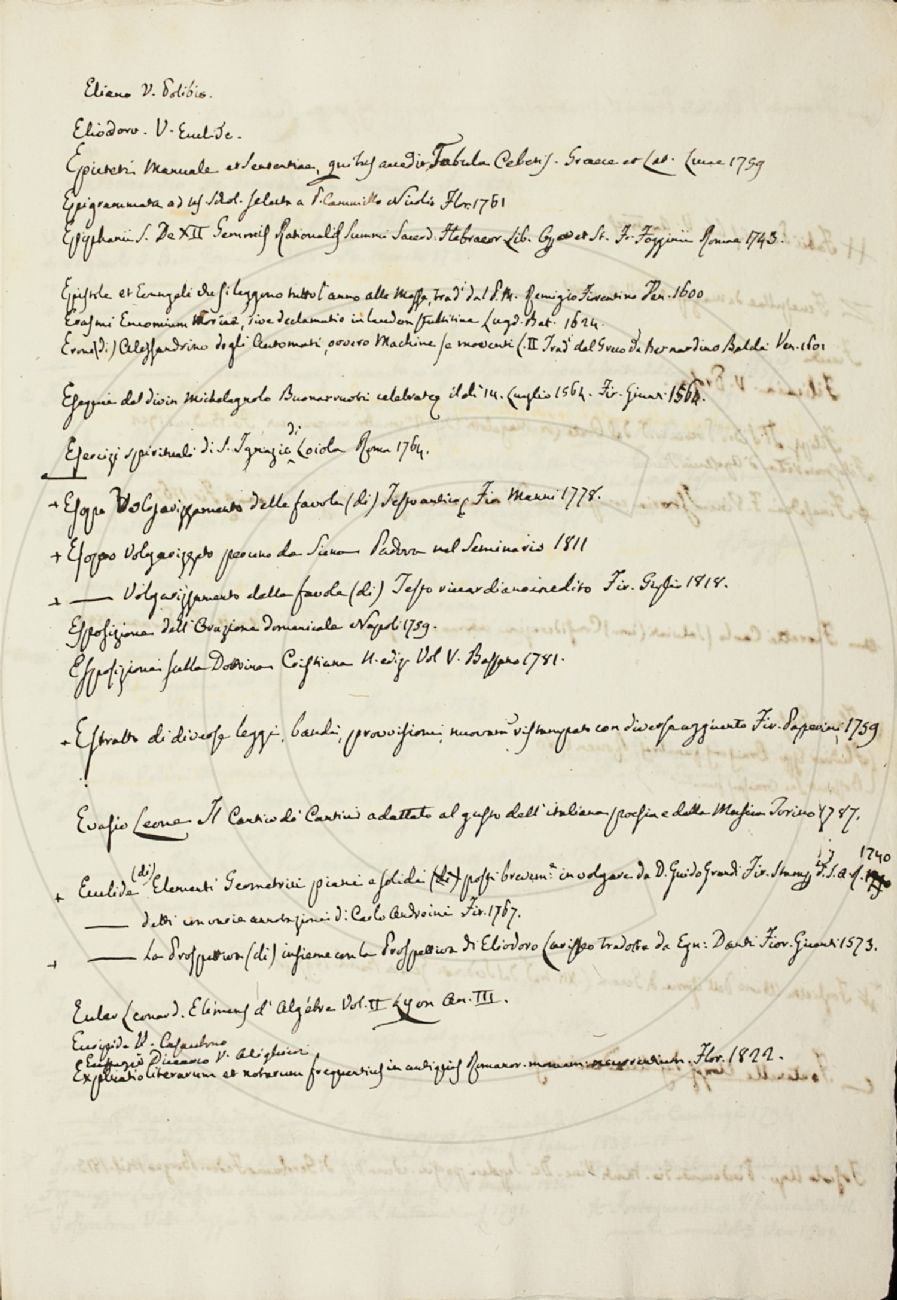 Eliano V. Polibio.
Eliodoro. V. Euclide.
Epicteti Manuale et Sententiae, quibus accedit Tabula Cebetis. Graece et Lat. Lucae 1759
Epigrammata ad us. Schol. selecta a P. Cammillo Nicolis Flor. 1761
Epiphanii S. De XII Gemmis Rationalis Summi Sacerd. Hebraeor. Lib. Op. et St. Fr. Fogginii Romae 1743.
Epistole et Evangeli che si leggono tutto l'anno alla Messa, trad. dal P. M. Remigio Fiorentino Ven. 1600
Erasmi Encomium Moriae, sive declamatio in laudem stultitiae Lugd. Bat. 1624.
Erone (di) Alessandrino degli Automati, ovvero Machine se moventi L. II Trad. dal Greco da Bernardino Baldi Ven. 1601
Esequie del divin Michelagnolo Buonarruoti celebrate il dì 14. Luglio 1564. Fir. Giunti 1564.
Esercizi spirituali di S. Ignazio di Loiola Roma 1764.
+ Esopo Volgarizzamento delle favole (di) Testo antico Fir. Manni 1778.
+ Esopo Volgarizzato per uno da Siena Padova nel Seminario 1811
+ —— Volgarizzamento delle favole (di) Testo riccardiano inedito Fir. 1818.
Esposizione dell'Orazione domenicale Napoli 1759.
Esposizioni sulla Dottrina Cristiana N. ediz. Vol V. Bassano 1781.
+ Estratto di diverse leggi, bandi, provvisioni, nuovam. ristampato con diverse aggiunte Fir. Paperini, 1759
Evasio Leone Il Cantico de' Cantici adattato al gusto dell'italiana poesia e della Musica Torino 1787.
+ Euclide (di) Elementi Geometrici piani e solidi (di) posti brevem.e in volgare da D. Guido Grandi Fir. Stamp. di S. A. R. 1740
—— detti con varie annotazioni di Carlo Andreini Fir. 1767.
+ —— La Prospettiva (di) insieme con la Prospettiva di Eliodoro Larisseo tradotta da Egn: Danti Fior. Giunti 1573.
Euler Leonard. Elémens d'Algébre Vol. II Lyon An. III.
Euripide V. Casaubono
Eustazio Dicearco V. Alighieri
Explicatio literarum et notarum frequentius in antiquis Romanor. monum. occurrentium. Flor. 1822.